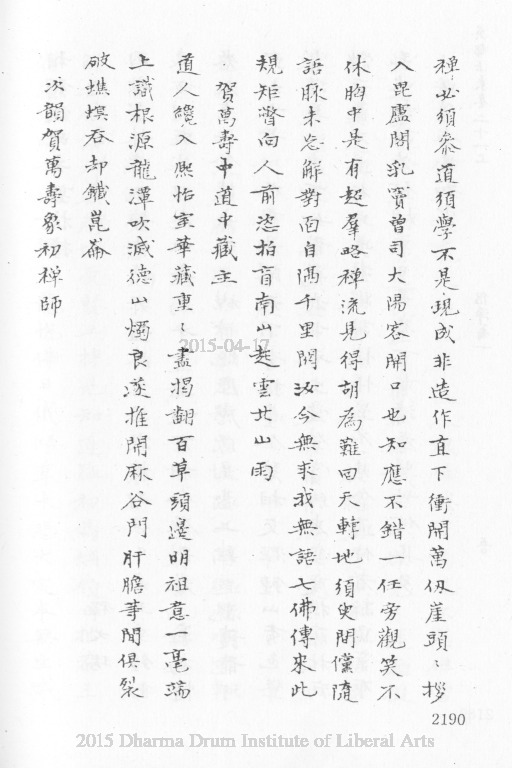 禅〻必須叅道須學不是現成非造作直下衝開萬仭崖頭〻拶
入毘盧閣乳竇曾司大陽客開口也知應不錯一任旁觀笑不
休胸中是有超羣略禅流見得胡為難回天轉地須臾間儻隨
語脉未忘觧對面自隔千里関汝今無求我無語七佛傳來此
規矩瞥向人前恣拍盲南山起雲北山雨
賀萬壽中道中藏主
道人纔入熈怡室華藏重〻盡揭翻百草頭邊明祖意一毫端
上識根源龍潭吹滅德山燭良遂推開麻谷門肝膽等閒俱裂
破蟭螟吞却鐵崑崙
次韻賀萬壽象初禅師
2190
2015-04-17
2015 Dharma Drum Institute of Liberal Arts